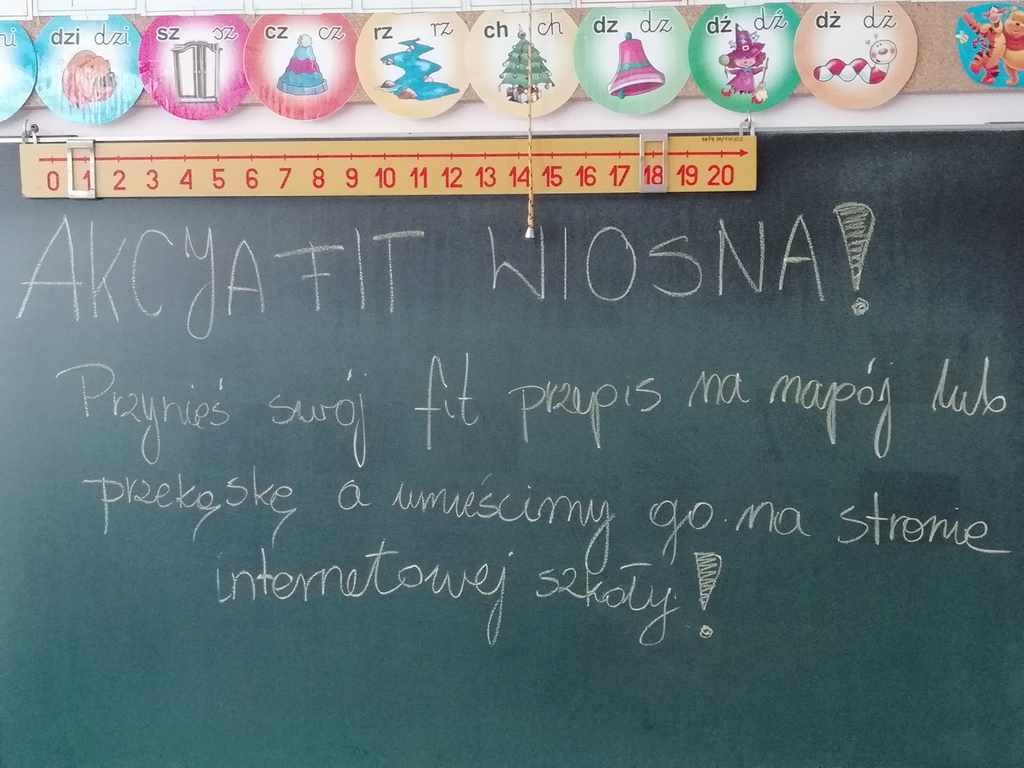 dzi dzi sz sz cz cz rz rz ch ch dz dz dź dź dż dż
0 1 2 3 4 5 6 7 8 9 10 11 12 13 14 15 16 17 18 19 20
AKCYA FIT WIOSNA!
Przynieś swój fit przepis na napój lub
przekąskę a umieścimy go na stronie
internetowej szkoły!